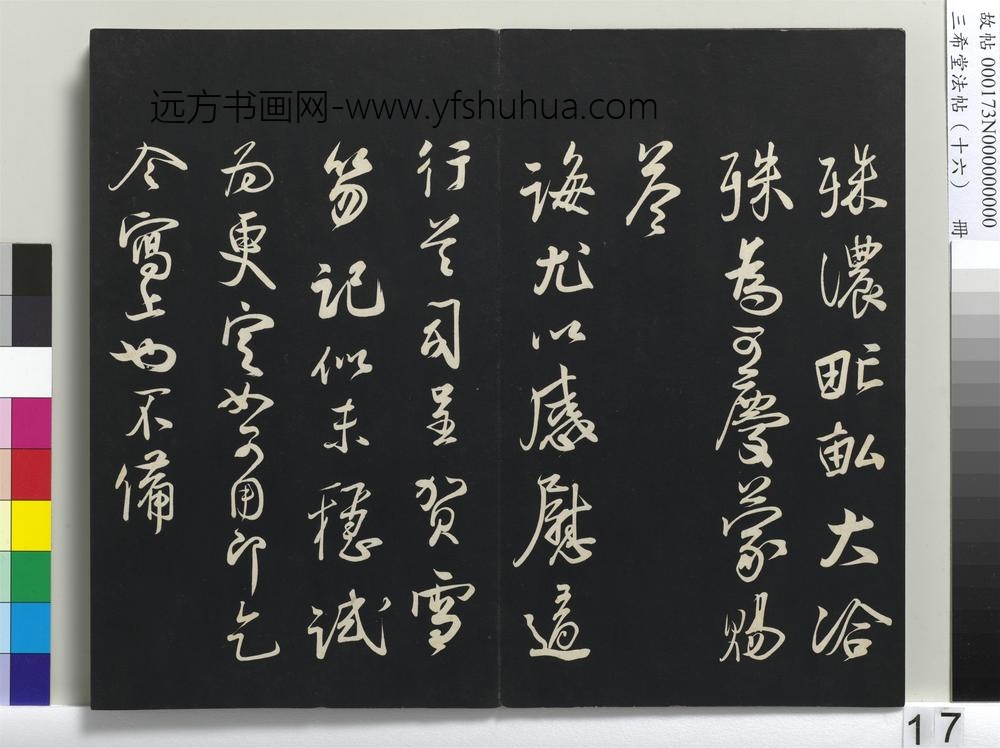 故帖 000173N000000000
三希堂法帖（十六） 冊
远方书画网-www.yfshuhua.com
殊濃甿畝大洽
殊為可慶蒙賜
答
誨尤以感慰適
行首司呈賀雪
笏記似未穩試
為更定如可用即乞
令寫上也不備
17